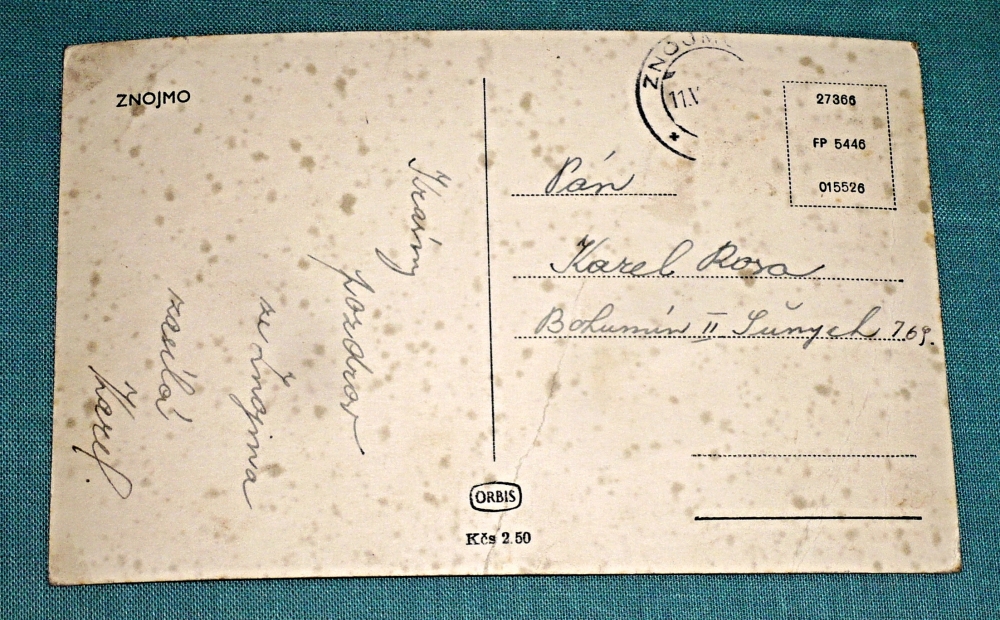 ZNOJMO
Krásný
pozdrav
ze Znojma
zasílá
Karel.
ZNOJM
11.V
27366
FP 5446
015526
Pán
Karel Rosa
Bohumín II Šunych 769.
ORBIS
Kčs 2.50